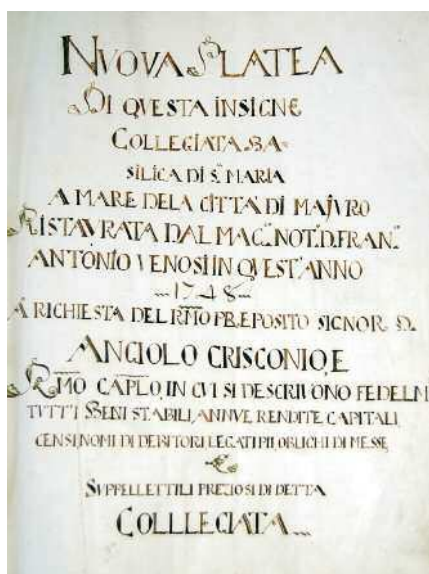 NVOVA PLATEA
DI QVESTA INSIGNE
COLLEGIATA BA=
SILICA DI S. MARIA
A MARE DELA CITTÀ DI MAJVRO
RISTAVRATA DAL MAG. NOT. D. FRAN.
ANTONIO VENOSI IN QVEST'ANNO
...1748...
A RICHIESTA DEL RMO PREPOSITO SIGNOR D.
ANGIOLO CRISCONIO, E
RMO CAPLO, IN CVI SI DESCRIVONO FEDELM
TVTT'I BENI STABILI, ANNVE RENDITE CAPITALI,
CENSI, NOMI DI DEBITORI LEGATI PII, OBLICHI DI MESSE,
E
SVPPELLETTILI PREZIOSI DI DETTA
COLLLEGIATA...